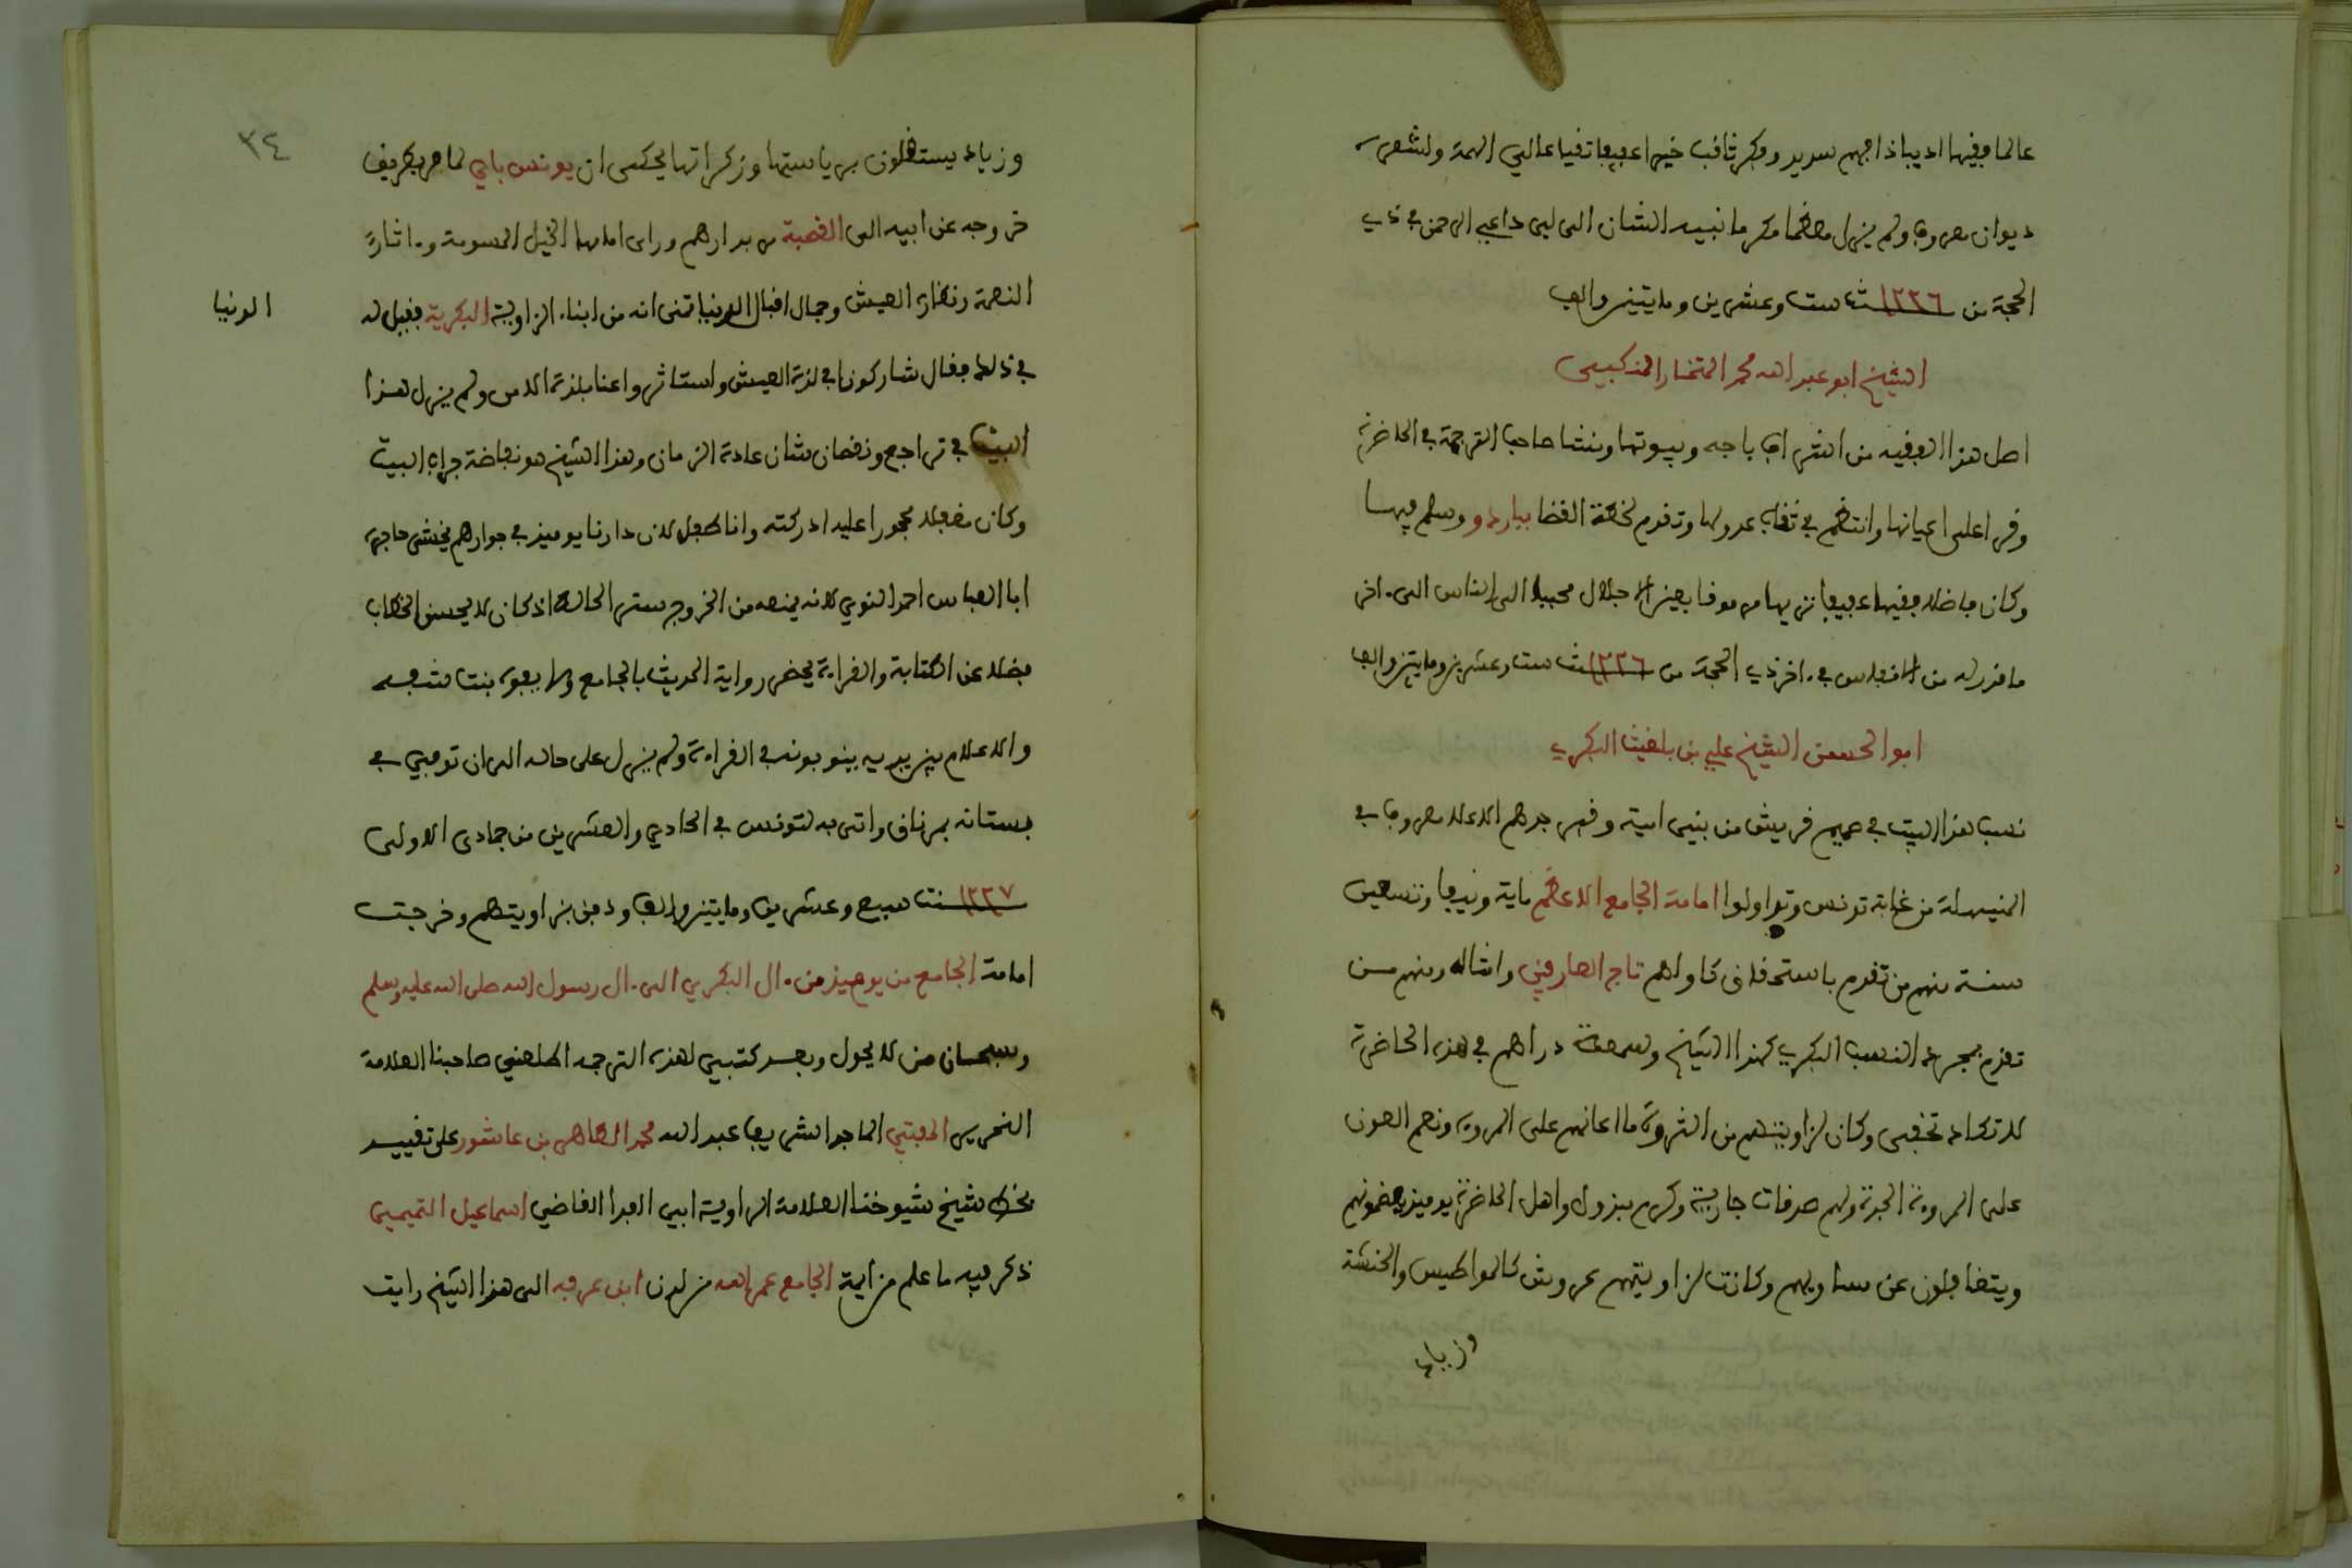 عالما فقيها اديبا ذا فهم سديد وفكر ثاقب خيرا عفيفا تقيا عالي الهمة ولشعره
ديوان معروف ولم يزل معظما مكرما نبيه الشان الى لبى داعي الرحمن في ذي
الحجة من ١٢٢٦ سنة ست وعشرين ومايتين والف
الشيخ ابو عبد الله محمد المختار المذكبي
اصل هذا الفقيه من اشراف باجه وبيوتها ونشا صاحب الترجمة في الحاضرة
وقرا على اعيانها وانتظم في ثقات عدولها وتقدم لخطة القضا بباردو وسلم فيها
وكان فاضلا فقيها عفيفا نزيها مرموقا بعين الاجلال محببا الى الناس الى اخر
ما قدر له من الانفاس في اخر ذي الحجة من ١٢٢٦ سنة ست وعشرين ومايتين والف
ابو الحسن الشيخ علي بن بلغيث البكري
نسب هذا البيت في صميم قريش من بني امية وقبر جدهم الاعلا معروف في
المنيهلة من غابة تونس وتداولوا امامة الجامع الاعظم ماية ونيفا وتسعين
سنة منهم من تقدم باستحقاق كاولهم تاج العارفين وامثاله ومنهم من
تقدم بمجرد النسب البكري كهذا الشيخ وسمعة دراهم في هذه الحاضرة
لا تكاد تخفى وكان لزاويتهم من الثروة ما اعانهم على المروة ونعم العون
على المروة الجدة ولهم صدقات جارية وكرم مبذول واهل الحاضرة يوميذ يعضمونهم
ويتغافلون عن مساويهم وكانت لزاويتهم عروش كالمواطيس والخنشة
وزياد
٣٤
وزياد يستظلون برياستها وزكراتها يحكى ان يونس باي لما مر بطريق
خروجه عن ابيه الى القصبة من بدارهم وراى امامها الخيل المسومة و اثار
النعمة ونظارة العيش وجمال اقبال الدنيا تمنى انه من ابناء الزاوية البكرية فقيل له
الدنيا
في ذلك فقال شاركونا في لذة العيش واستاثروا عنا بلذة الامن ولم يزل هذا
البيت في تراجع ونقصان شان عادة الزمان وهذا الشيخ هو نفاضة جراب البيت
وكان مغفلا محجورا عليه ادركته وانا طفل لان دارنا يوميذ في جوارهم يخشى حاجبه
ابا العباس احمد النوي لانه يمنعه من الخروج ستر الحاله اذ كان لا يحسن الخطاب
فضلا عن الكتابة والقراءة يحضر رواية الحديث بالجامع ولا يفوه بنت شفه
والاعلام بين يديه يتنوبون في القراءة ولم يزل على حاله الى ان توفي في
بستانه بمرناق واتى به لتونس في الحادي والعشرين من جمادى الاولى
١٢٢٧ سنة سبع وعشرين ومايتين والف ودفن بزاويتهم وخرجت
امامة الجامع من يوميذ من ال البكري الى ال رسول الله صلى الله عليه وسلم
وسبحان من لا يحول وبعد كتبي لهذه الترجمه اطلعني صاحبنا العلامة
النحرير المفتي الماجد الشريف عبد الله محمد الطاهر بن عاشور على تقييد
بخط شيخ شيوخنا العلامة الراوية ابي الفدا القاضي اسماعيل التميمي
ذكر فيه ما علم من ايمة الجامع عمره الله من لدن ابن عرفه الى هذا الشيخ رايت